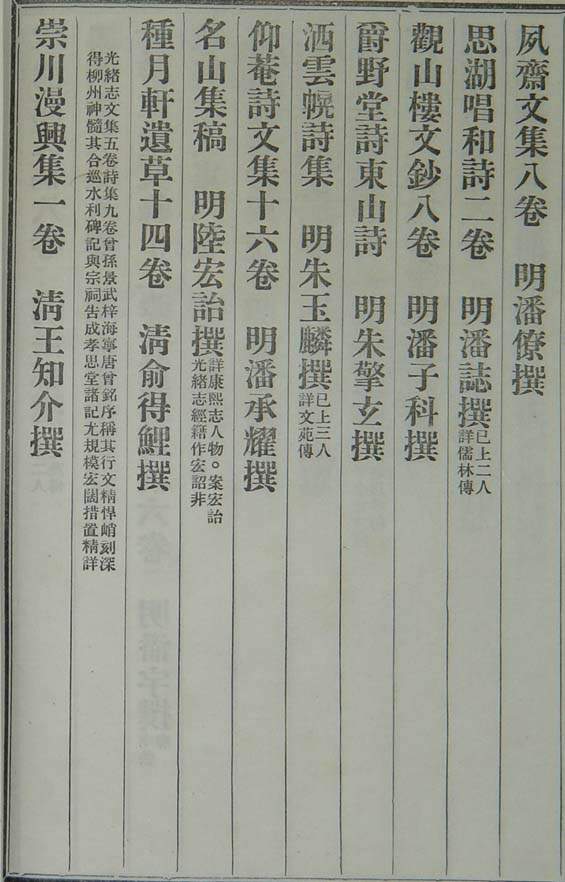 夙齋文集八卷　明潘僚撰
思湖唱和詩二卷　明潘誌撰已上二人
詳儒林傳
觀山樓文鈔八卷　明潘子科撰
爵野堂詩東山詩　明朱擎玄撰
洒雲幌詩集　明朱玉麟撰已上三人
詳文苑傳
仰菴詩文集十六卷　明潘承耀撰
名山集稿　明陸宏詒撰詳康熙志人物。案宏詒
光緒志經籍作宏詔非
種月軒遺草十四卷　淸俞得鯉撰
光緒志文集五卷詩集九卷曾孫景武梓海寧唐曾銘序稱其行文精悍峭刻深
得柳州神髓其合巡水利碑記與宗祠告成孝思堂諸記尤規模宏闊措置精詳
崇川漫興集一卷　淸王知介撰